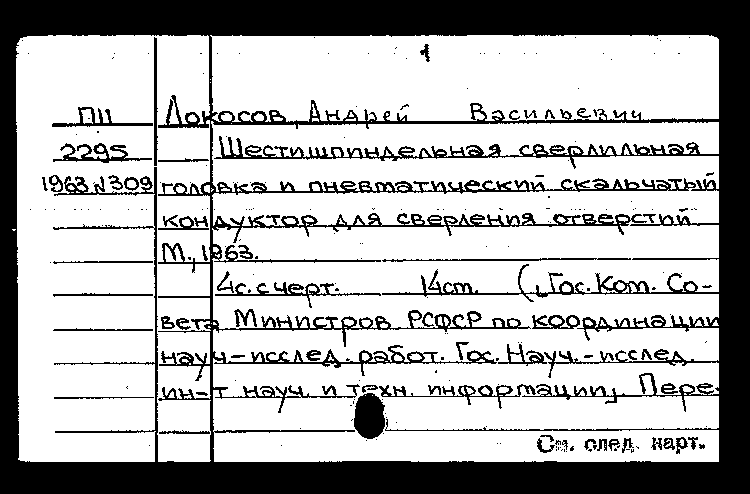 1
П11 Локосов, Андрей Васильевич
2295 Шестишпиндельная сверлильная
1963 N309 головка и пневматический скальчатый
кондуктор для сверления отверстий.
М., 1963.
4с. с черт. 14см. (Гос. Ком. Со-
вета Министров РСФСР по координации
науч-исслед. работ. Гос. Науч.-исслед.
ин-т науч. и техн. информации). Пере-
См. след. карт.